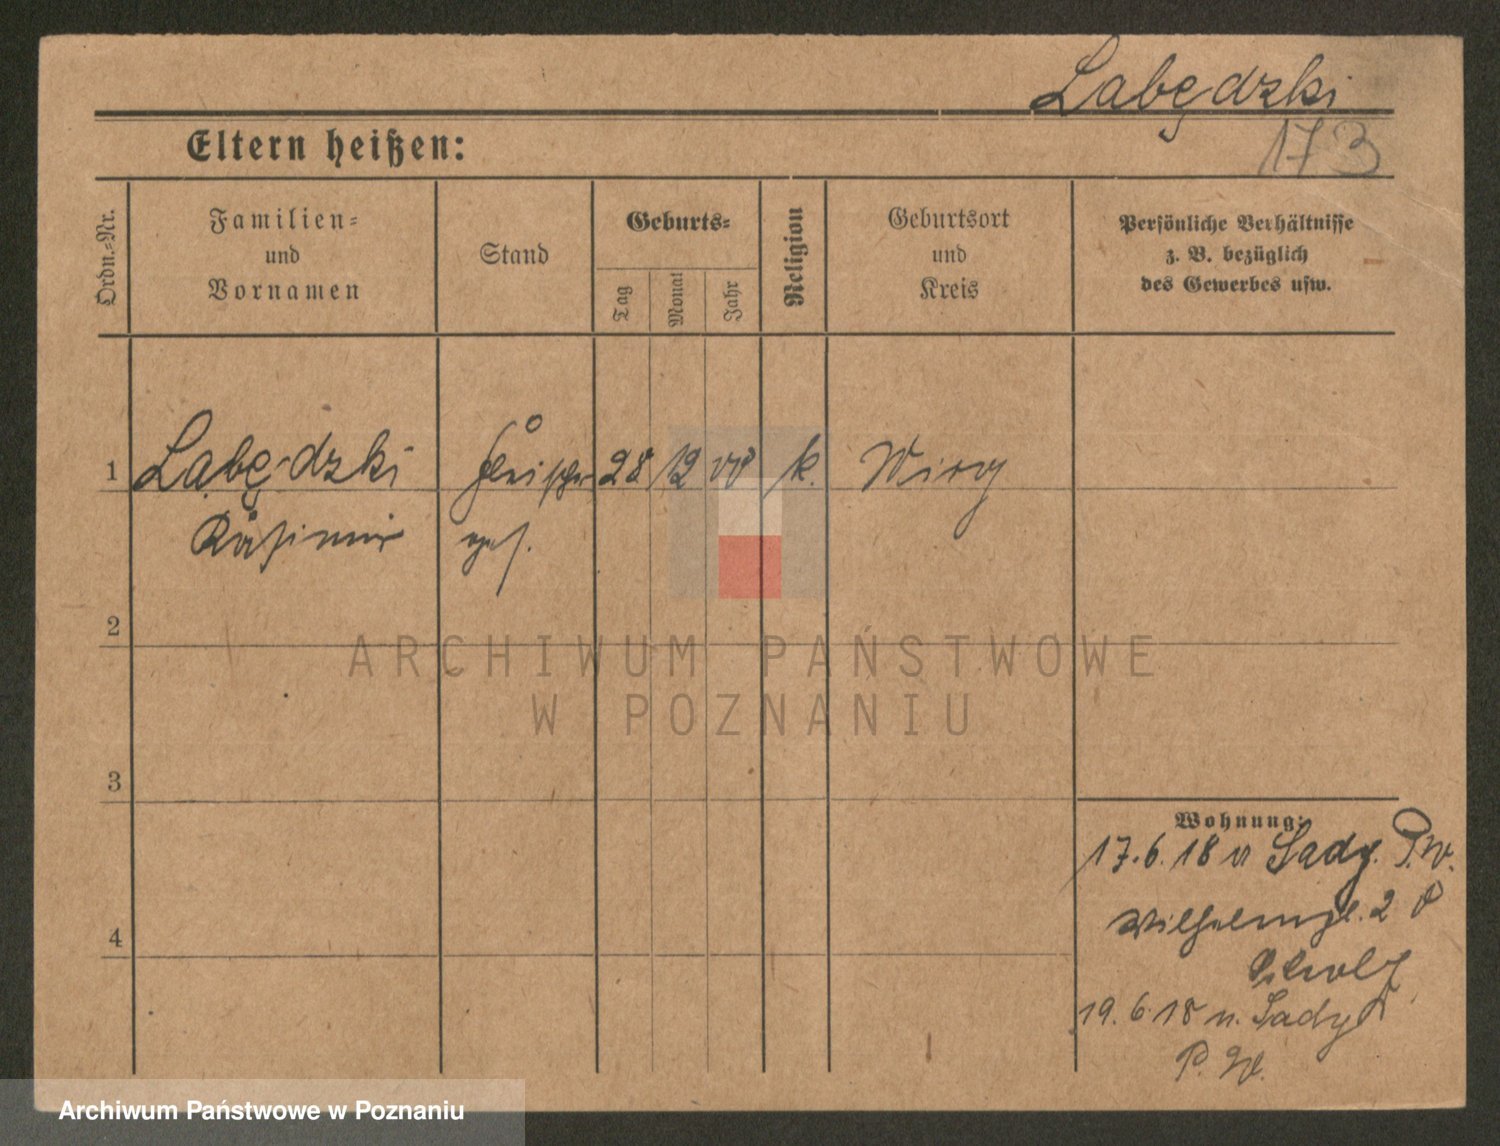 Łabędzki
173
Eltern heißen:
Ordn.=Nr.
Familien=
und
Vornamen
Stand
Geburts=
Tag
Monat
Jahr
Religion
Geburtsort
und
Kreis
Persönliche Verhältnisse
z. B. bezüglich
des Gewerbes usw.
1
Łabędzki 28 12 k. Wiry
Kasimir
ges.
2
ARCHIWUM PAŃSTWOWE
W POZNANIU
3
Wohnung:
17.6.18 v Sady. P.W.
Wilhelmpl. 2
4
19.6.18 n. Sady
P. W.
Archiwum Państwowe w Poznaniu